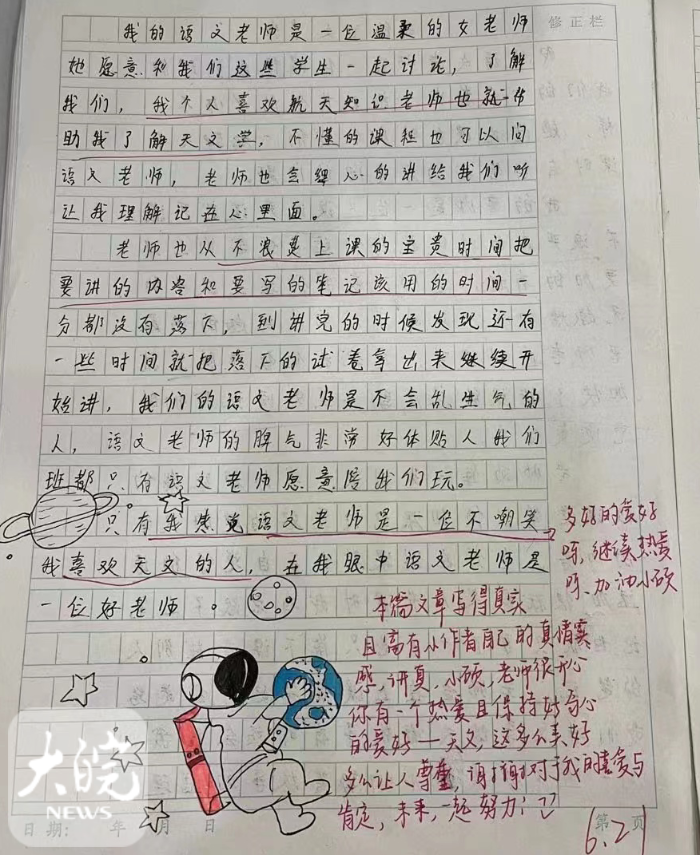 我的语文老师是一位温柔的女老师
修正栏
她愿意和我们这些学生一起讨论，了解
我们，我个人喜欢航天知识老师也就一份
助我了解天文学，不懂的课程也可以问
语文老师，老师也会细心的讲给我们听
让我理解记在心里面。
老师也从不浪费上课的宝贵时间把
要讲的内容和要写的笔记该用的时间一
分都没有落下，到讲完的时候发现还有
一些时间就把落下的试卷拿出来继续开
始讲，我们的语文老师是不会乱生气的
人，语文老师的脾气非常好体贴人我们
班都只有语文老师愿意陪我们玩。
只有我感觉语文老师是一位不嘲笑
我喜欢天文的人，在我眼中语文老师是
一位好老师。
多好的爱好
呀，继续热爱
呀、加油小硕
本篇文章写得真实
且富有小作者自己的真情实
感，讲真，小硕，老师很开心
你有一个热爱且保持好奇心
的爱好——天文，这多么美好
多么让人尊重，谢谢对于我的喜爱与
肯定，未来，一起努力！
6.21
大皖
NEWS
日期： 年 月 日
第 页